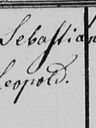 Sebastian
Leopold.